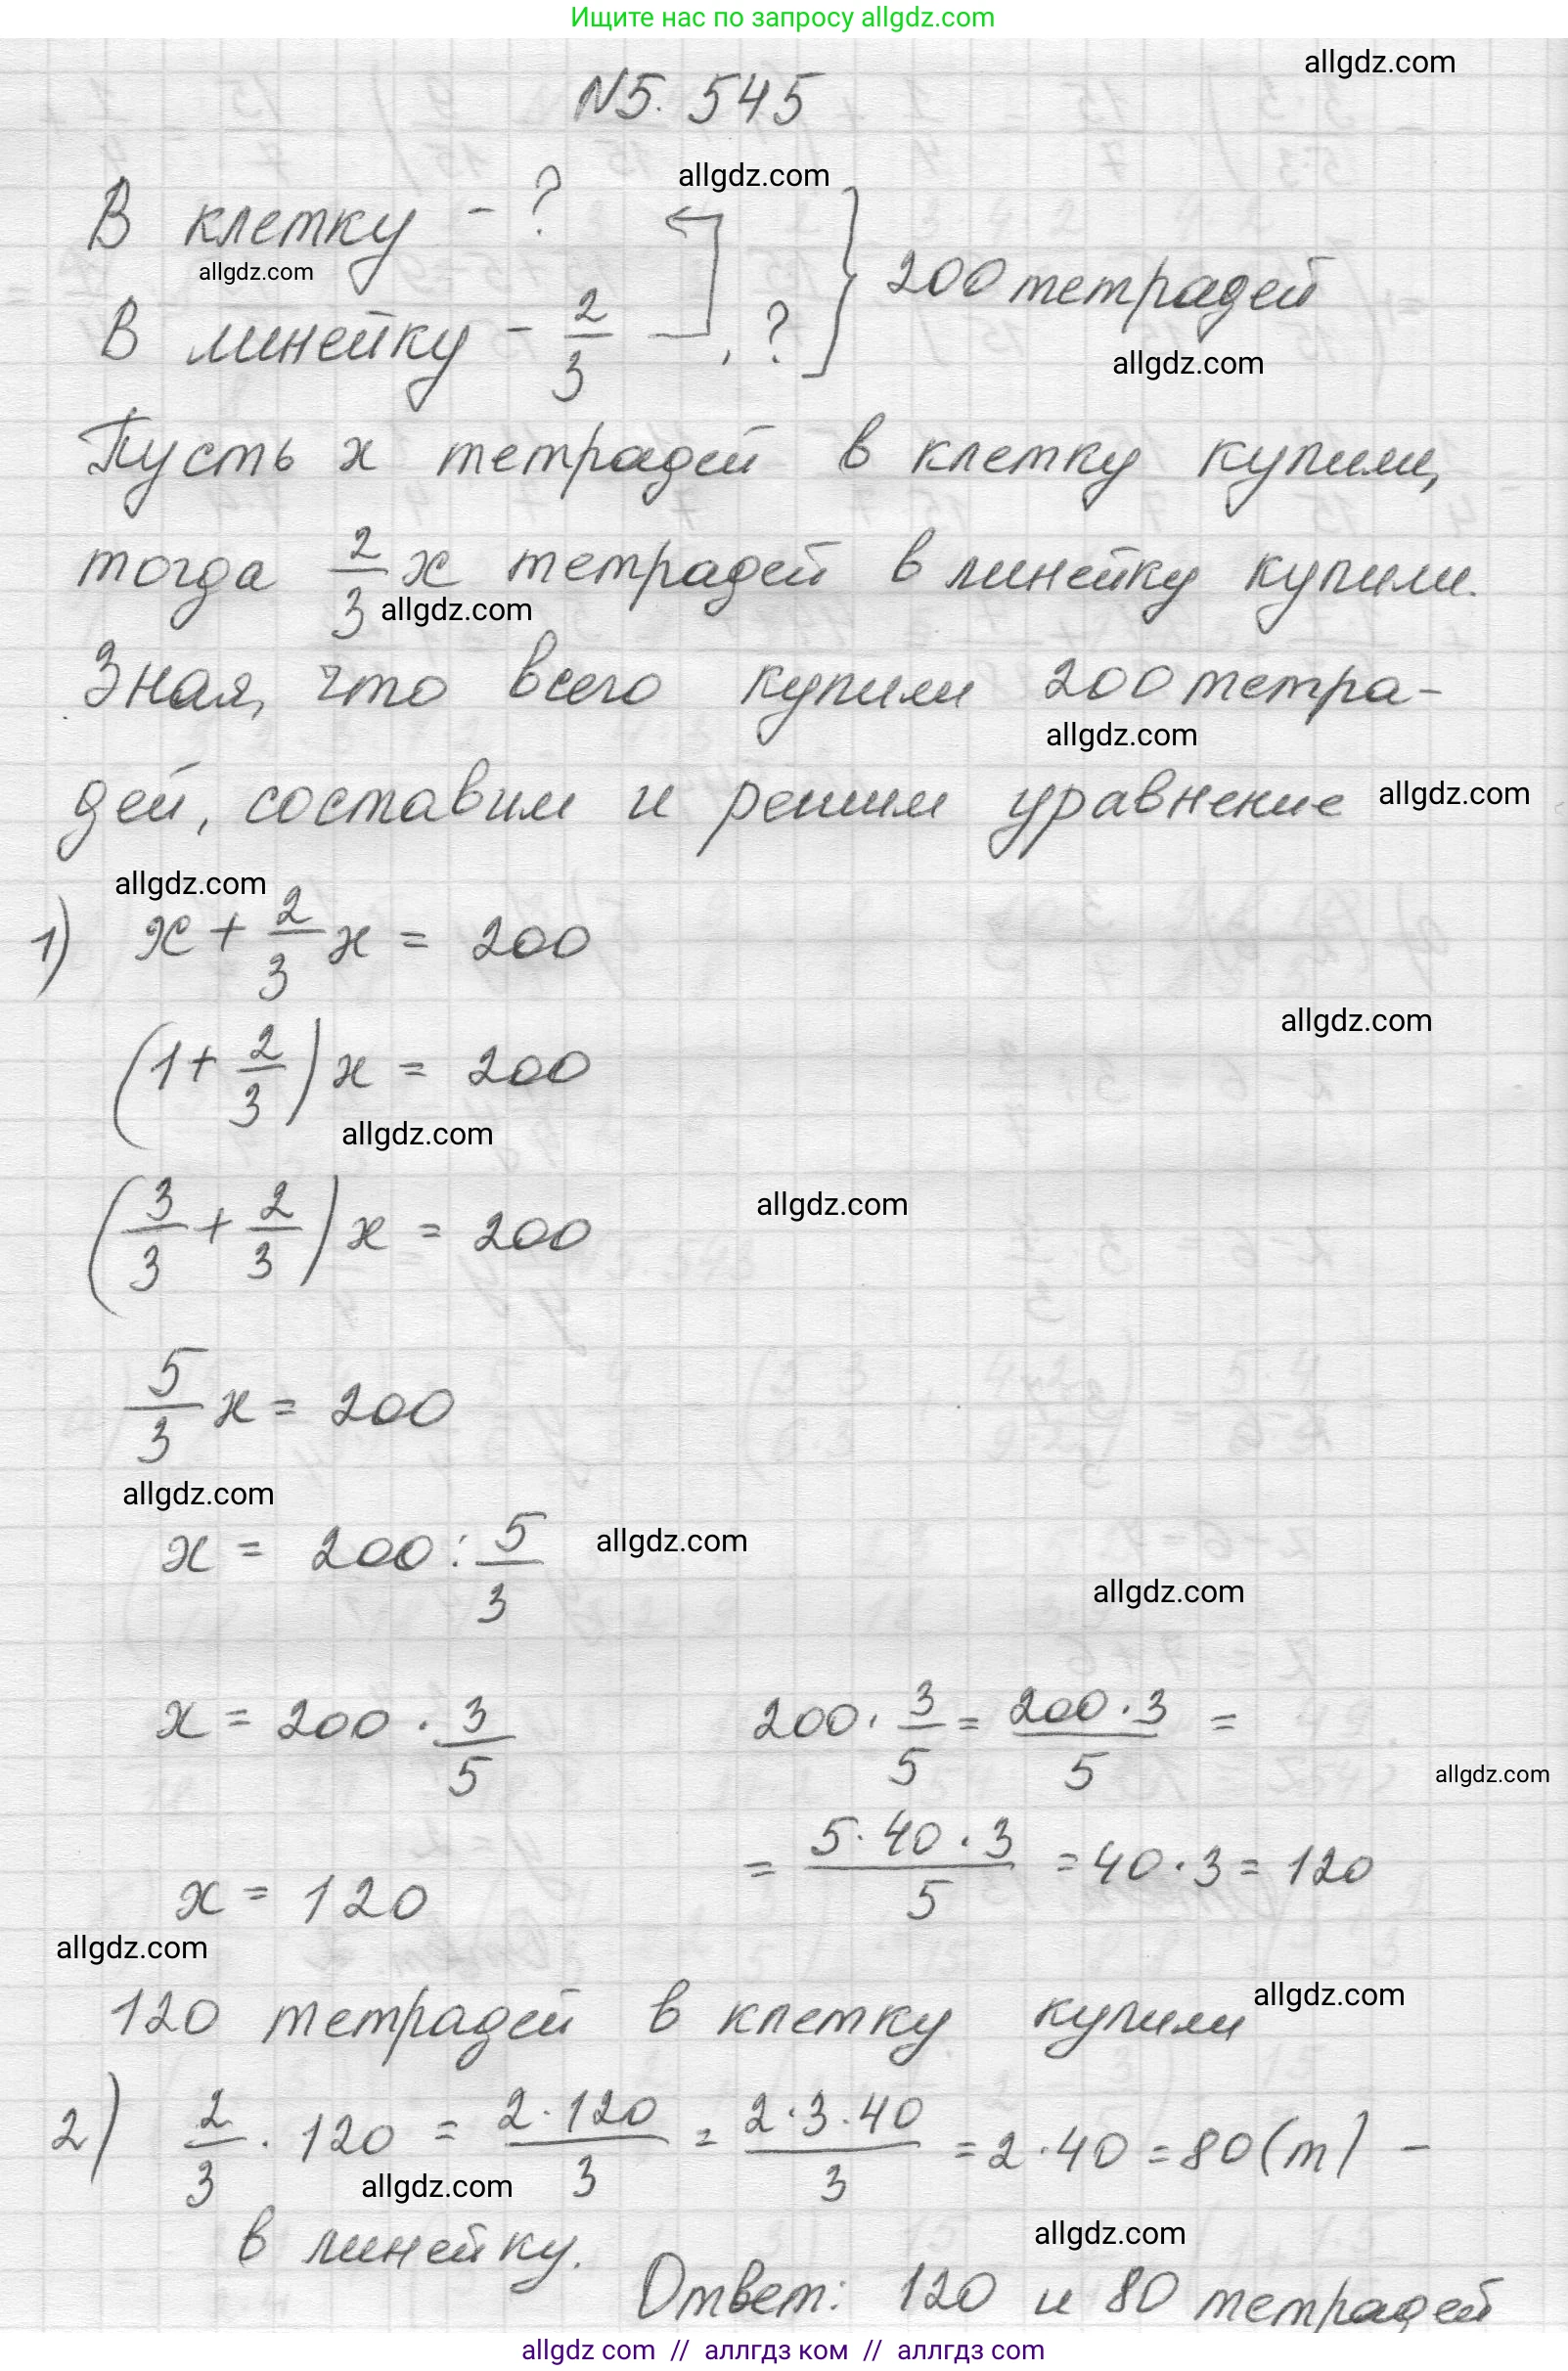 Ищите нас по запросу allgdz.com
allgdz.com
N5. 545
allgdz.com
В клетку - ?
allgdz.com
В линейку - 2/3 , ? } 200 тетрадей
allgdz.com
Пусть x тетрадей в клетку купили,
тогда 2/3 x тетрадей в линейку купили.
allgdz.com
Зная, что всего купили 200 тетра-
allgdz.com
дей, составим и решим уравнение
allgdz.com
allgdz.com
1) x + 2/3 x = 200
allgdz.com
(1 + 2/3) x = 200
allgdz.com
(3/3 + 2/3) x = 200
allgdz.com
5/3 x = 200
allgdz.com
x = 200 : 5/3
allgdz.com
allgdz.com
x = 200 · 3/5
200 · 3/5 = 200 · 3/5 =
allgdz.com
= 5 · 40 · 3/5 = 40 · 3 = 120
x = 120
allgdz.com
allgdz.com
120 тетрадей в клетку купили
2) 2/3 · 120 = 2 · 120/3 = 2 · 3 · 40/3 = 2 · 40 = 80 (т) -
allgdz.com
в линейку.
allgdz.com
Ответ: 120 и 80 тетрадей
allgdz.com // аллгдз ком // аллгдз com